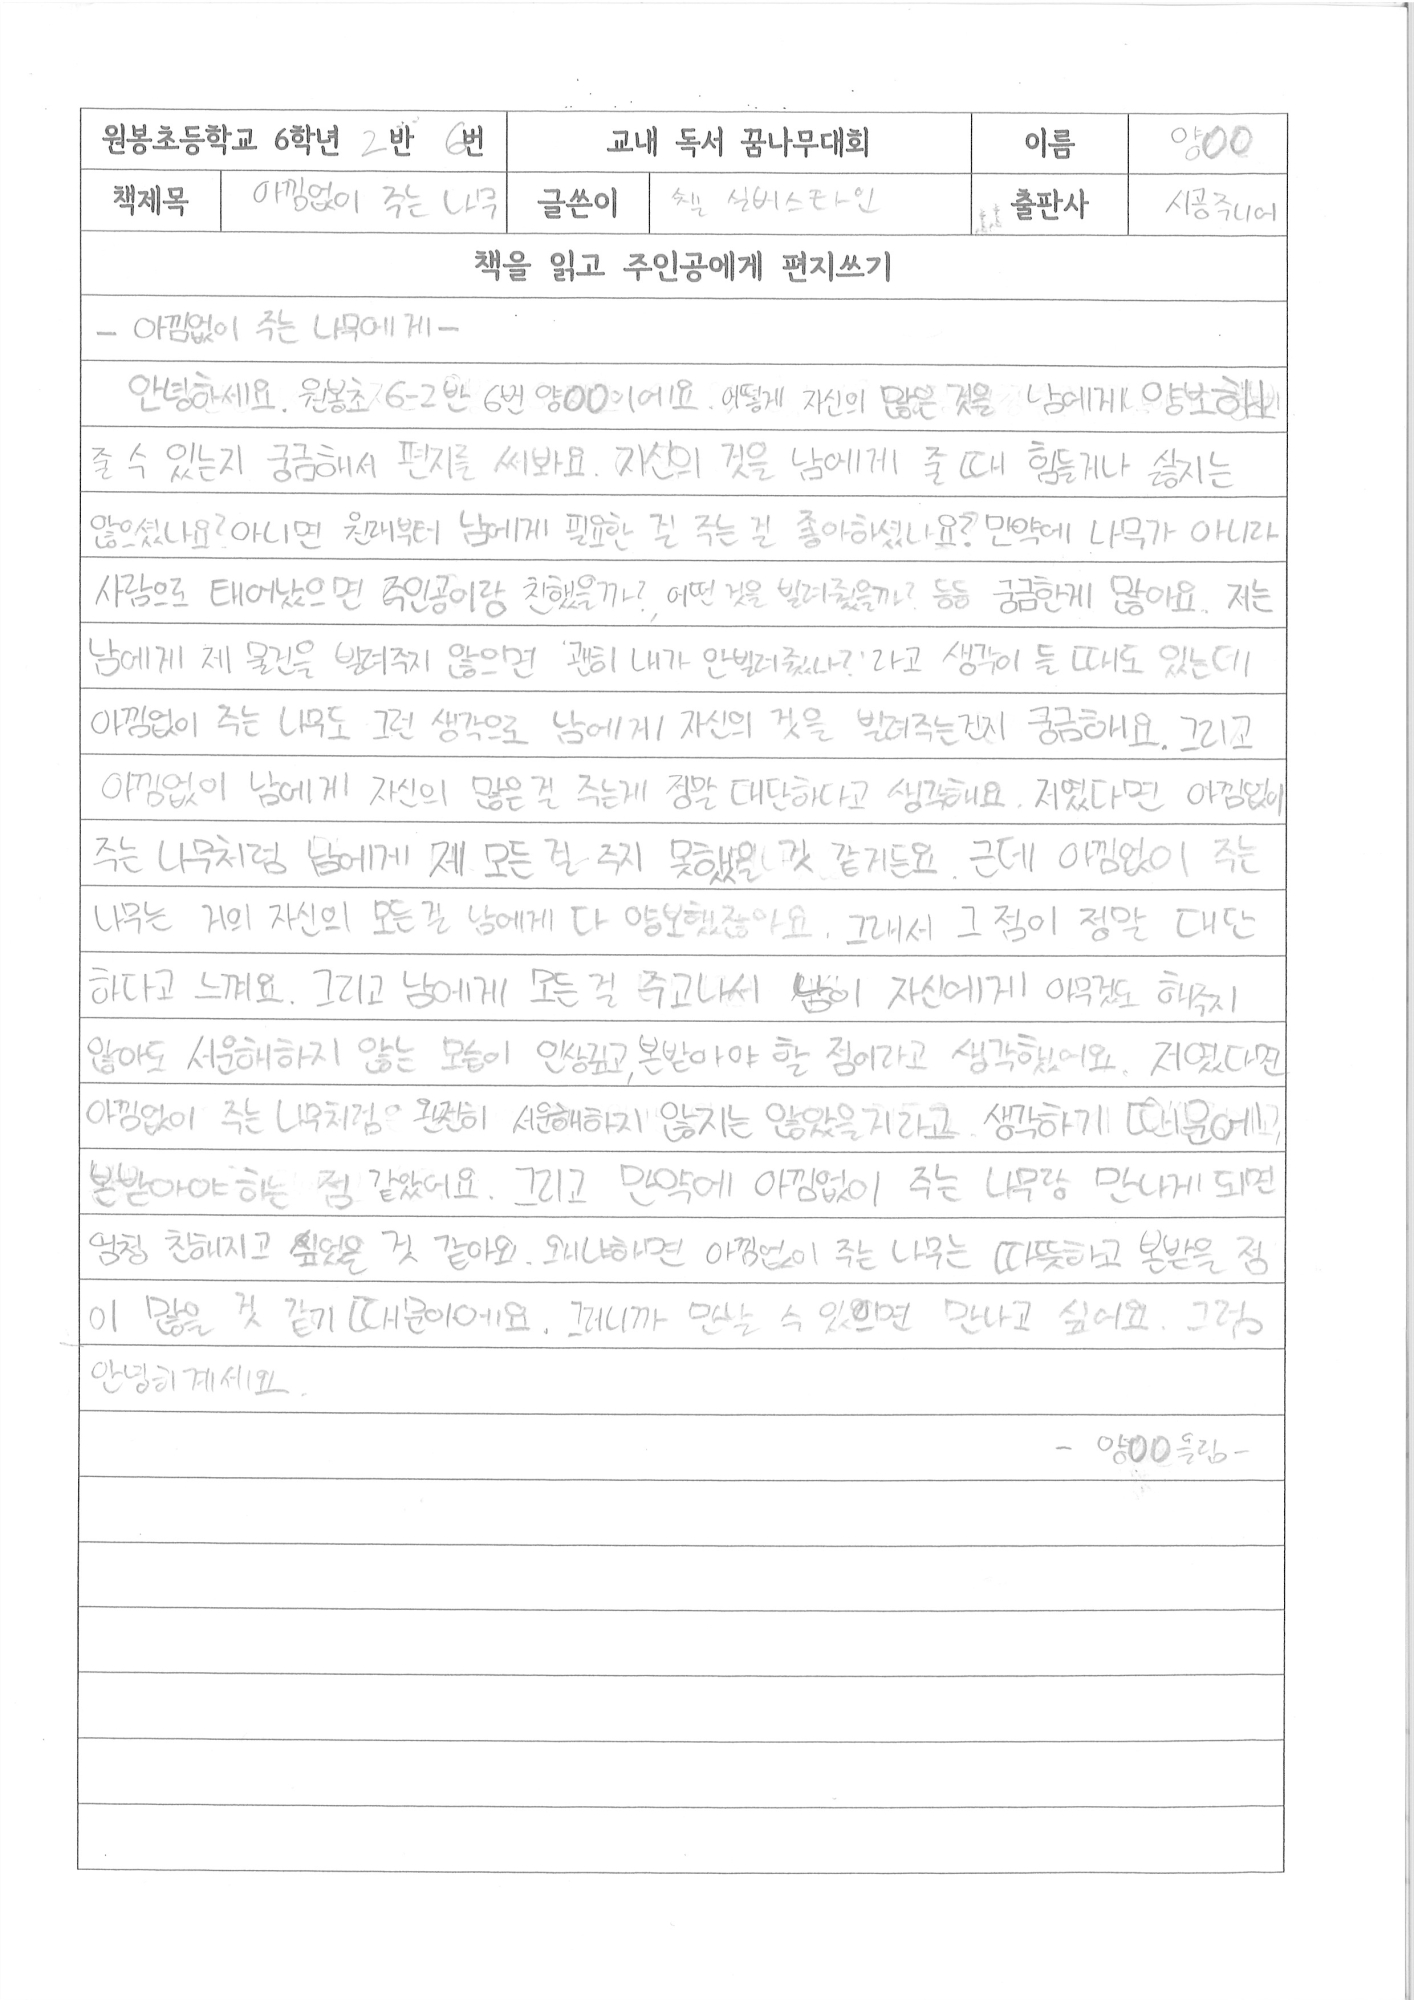 원봉초등학교 6학년 2반 6번 교내 독서 꿈나무대회 이름 양00
책제목 아낌없이 주는 나무 글쓴이 쉘 실버스타인 출판사 시공주니어
책을 읽고 주인공에게 편지쓰기
- 아낌없이 주는 나무에게 -
안녕하세요. 원봉초 6-2반 6번 양00이에요. 어떻게 자신의 많은 것을 남에게 양보하고
줄 수 있는지 궁금해서 편지를 써봐요. 자신의 것을 남에게 줄 때 힘들거나 싫지는
않으셨나요? 아니면 원래부터 남에게 필요한 걸 주는 걸 좋아하셨나요? 만약에 나무가 아니라
사람으로 태어났으면 주인공이랑 친했을까?, 어떤 것을 빌려줬을까? 등등 궁금한게 많아요. 저는
남에게 제 물건을 빌려주지 않으면 '괜히 내가 안빌려줬나?' 라고 생각이 들 때도 있는데
아낌없이 주는 나무도 그런 생각으로 남에게 자신의 것을 빌려주는건지 궁금해요. 그리고
아낌없이 남에게 자신의 많은걸 주는게 정말 대단하다고 생각해요. 저였다면 아낌없이
주는 나무처럼 남에게 제 모든 걸 주지 못했을 것 같거든요. 근데 아낌없이 주는
나무는 거의 자신의 모든걸 남에게 다 양보했잖아요. 그래서 그 점이 정말 대단
하다고 느껴요. 그리고 남에게 모든걸 주고나서 남이 자신에게 아무것도 해주지
않아도 서운해하지 않는 모습이 인상깊고, 본받아야 할 점이라고 생각했어요. 저였다면
아낌없이 주는 나무처럼 완전히 서운해하지 않지는 않았을거라고 생각하기 때문에,
본받아야 하는 점 같았어요. 그리고 만약에 아낌없이 주는 나무랑 만나게 되면
엄청 친해지고 싶었을 것 같아요. 왜냐하면 아낌없이 주는 나무는 따뜻하고 본받을 점
이 많을 것 같기 때문이에요. 그러니까 만날 수 있으면 만나고 싶어요. 그럼
안녕히계세요.
- 양00 올림 -